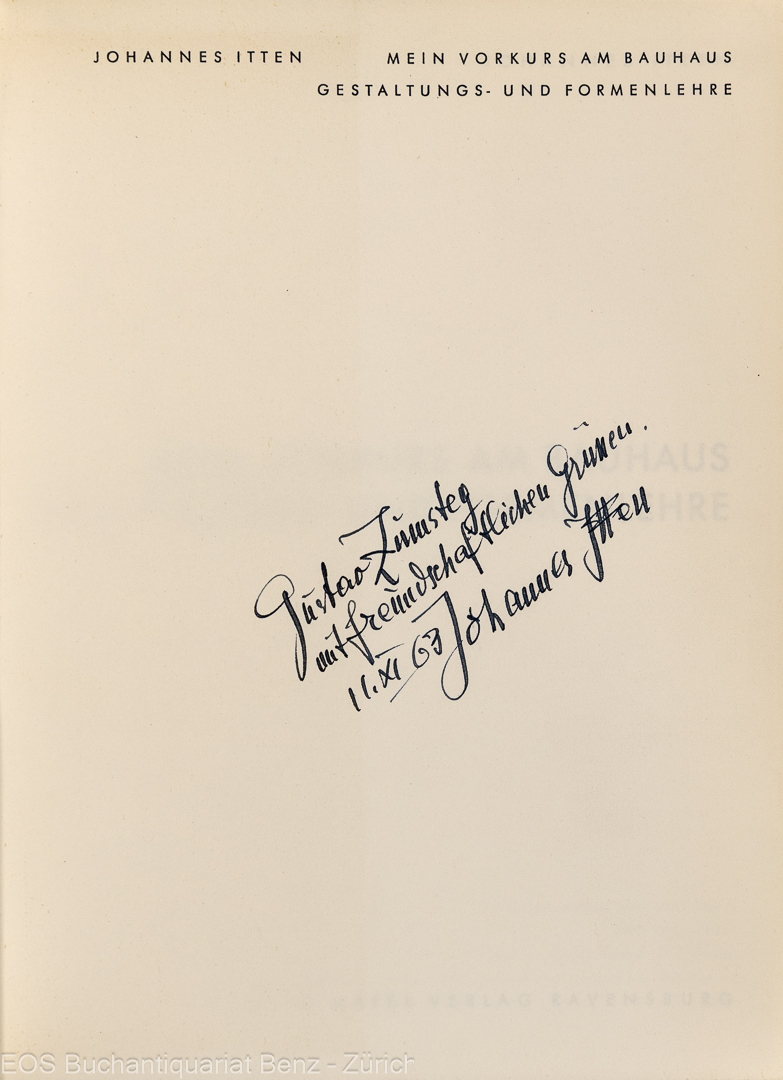 JOHANNES ITTEN MEIN VORKURS AM BAUHAUS
GESTALTUNGS- UND FORMENLEHRE
Gustav Zumsteg
mit freundschaftlichen Grüssen.
11. XI 63 Johannes Itten
VERLAG RAVENSBURG
EOS Buchantiquariat Benz - Zürich